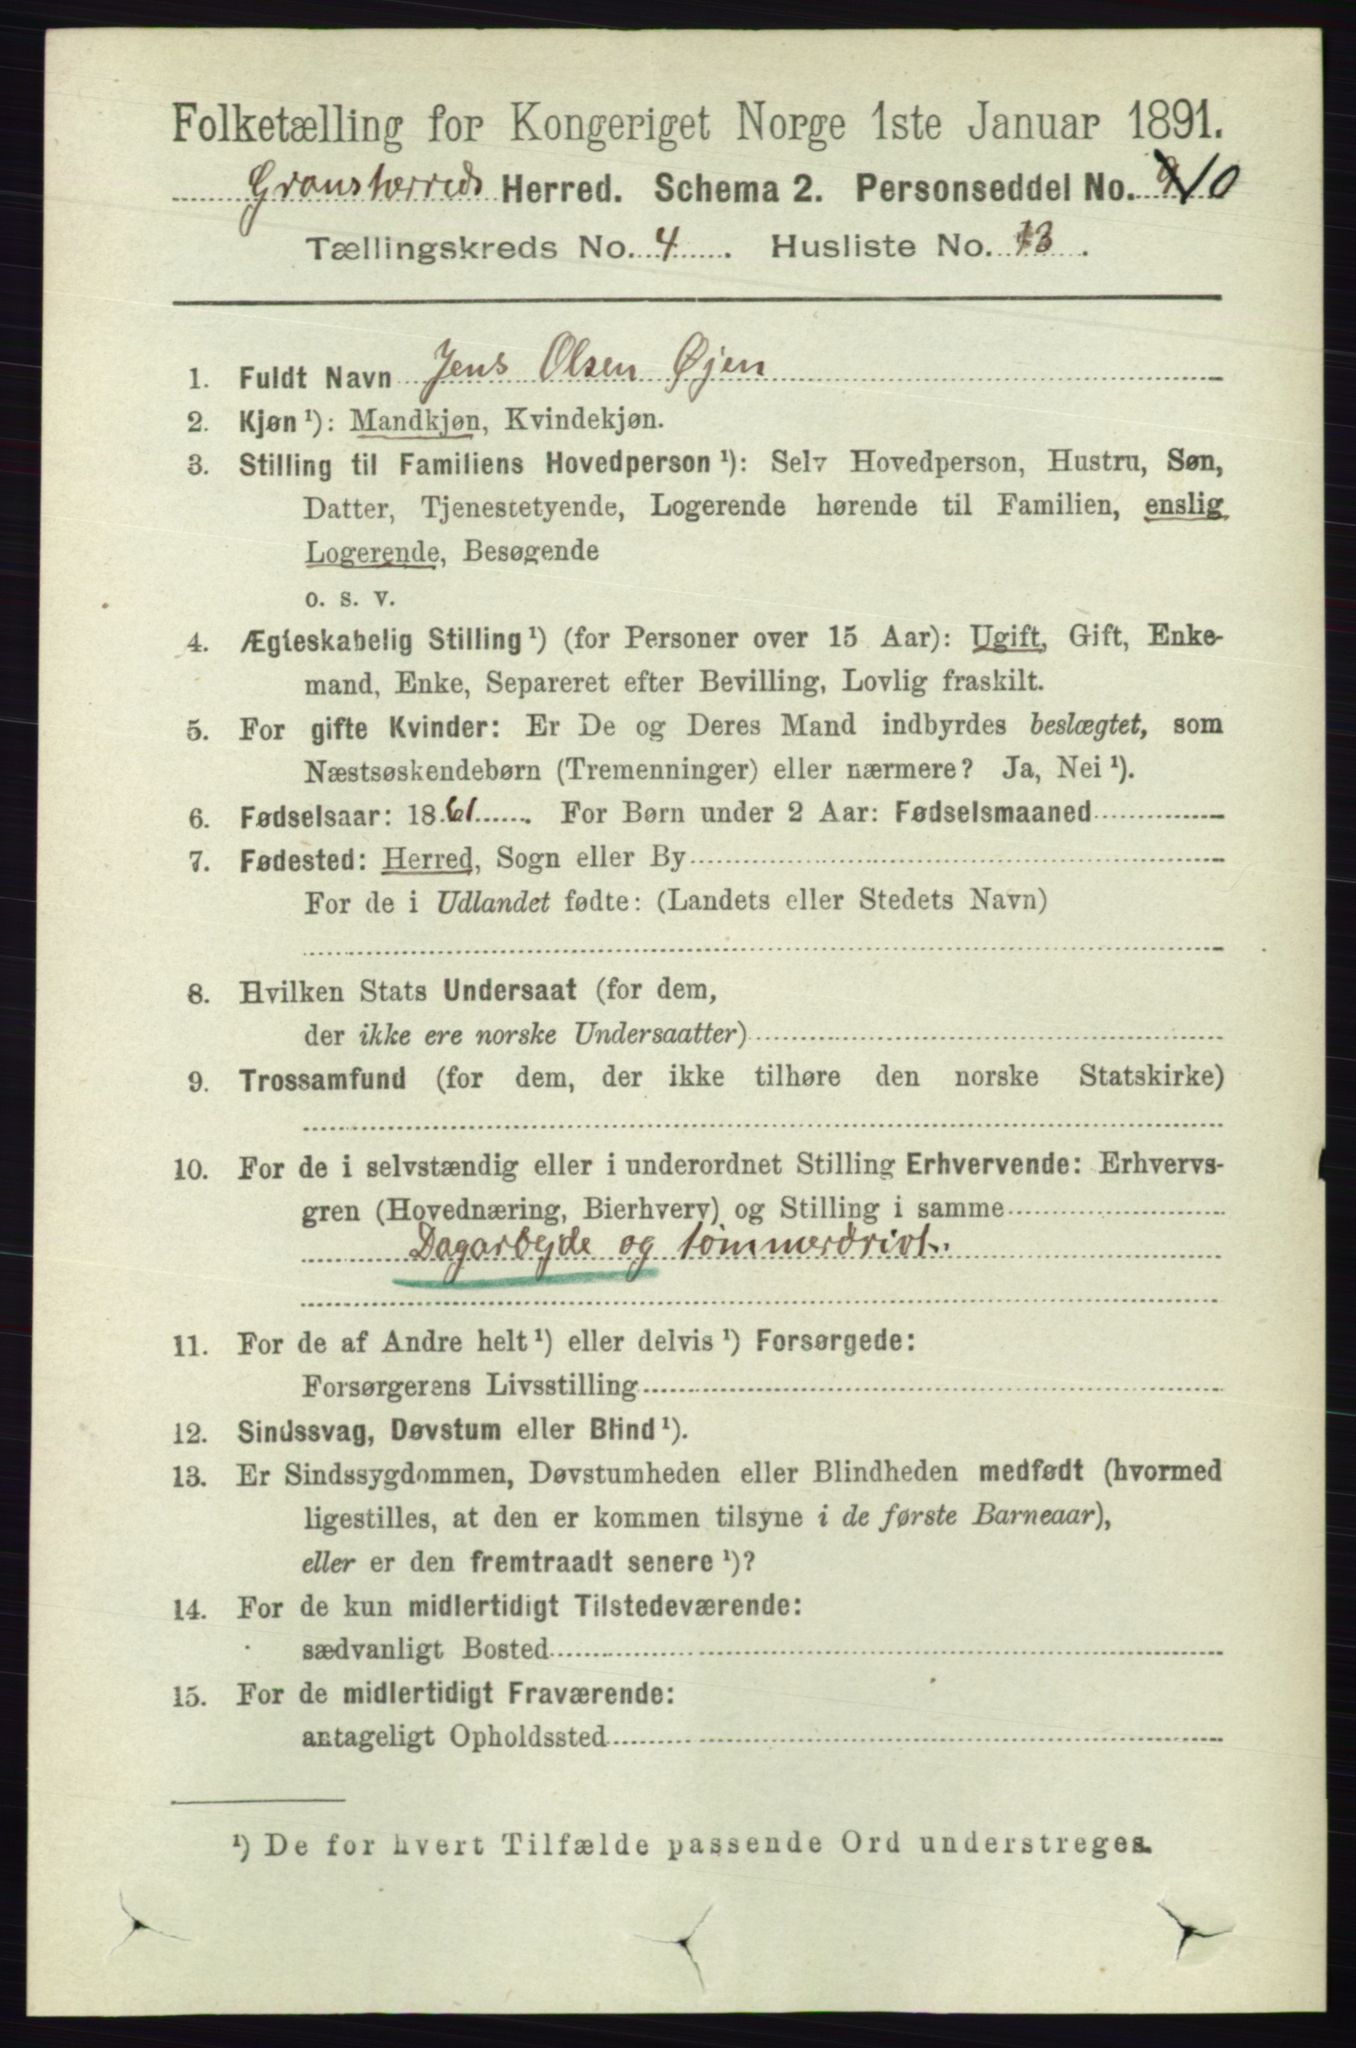 Folketælling for Kongeriget Norge 1ste Januar 1891.
Gransherreds Herred. Schema 2. Personseddel No. 10
Tællingskreds No. 4. Husliste No. 13.
1. Fuldt Navn Jens Olsen Øjen
2. Kjøn ¹): Mandkjøn, Kvindekjøn.
3. Stilling til Familiens Hovedperson ¹): Selv Hovedperson, Hustru, Søn,
Datter, Tjenestetyende, Logerende hørende til Familien, enslig
Logerende, Besøgende
o. s. v.
4. Ægteskabelig Stilling ¹) (for Personer over 15 Aar): Ugift, Gift, Enke-
mand, Enke, Separeret efter Bevilling, Lovlig fraskilt.
5. For gifte Kvinder: Er De og Deres Mand indbyrdes beslægtet, som
Næstsøskendebørn (Tremenninger) eller nærmere? Ja, Nei ¹).
6. Fødselsaar: 1861. For Børn under 2 Aar: Fødselsmaaned
7. Fødested: Herred, Sogn eller By
For de i Udlandet fødte: (Landets eller Stedets Navn)
8. Hvilken Stats Undersaat (for dem,
der ikke ere norske Undersaatter)
9. Trossamfund (for dem, der ikke tilhøre den norske Statskirke)
10. For de i selvstændig eller i underordnet Stilling Erhvervende: Erhvervs-
gren (Hovednæring, Bierhverv) og Stilling i samme
Dagarbejde og tømmerdrivt.
11. For de af Andre helt ¹) eller delvis ¹) Forsørgede:
Forsørgerens Livsstilling
12. Sindssvag, Døvstum eller Blind ¹).
13. Er Sindssygdommen, Døvstumheden eller Blindheden medfødt (hvormed
ligestilles, at den er kommen tilsyne i de første Barneaar),
eller er den fremtraadt senere ¹)?
14. For de kun midlertidigt Tilstedeværende:
sædvanligt Bosted
15. For de midlertidigt Fraværende:
antageligt Opholdssted
¹) De for hvert Tilfælde passende Ord understreges.